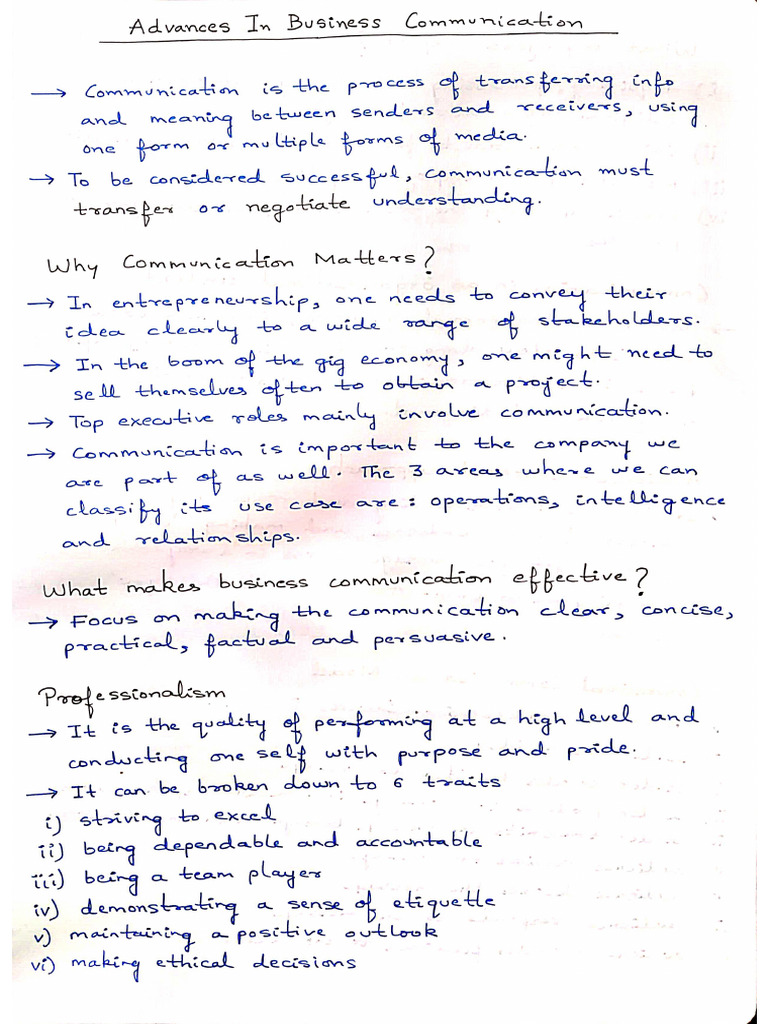 Advances In Business Communication
→ Communication is the process of transferring info
and meaning between senders and receivers, using
one form or multiple forms of media.
→ To be considered successful, communication must
transfer or negotiate understanding.
Why Communication Matters?
→ In entrepreneurship, one needs to convey their
idea clearly to a wide range of stakeholders.
→ In the boom of the gig economy, one might need to
sell themselves often to obtain a project.
→ Top executive roles mainly involve communication.
→ Communication is important to the company we
are part of as well. The 3 areas where we can
classify its use case are: operations, intelligence
and relationships.
What makes business communication effective?
→ Focus on making the communication clear, concise,
practical, factual and persuasive.
Professionalism
→ It is the quality of performing at a high level and
conducting one self with purpose and pride.
→ It can be broken down to 6 traits
i) striving to excel
ii) being dependable and accountable
iii) being a team player
iv) demonstrating a sense of etiquette
v) maintaining a positive outlook
vi) making ethical decisions